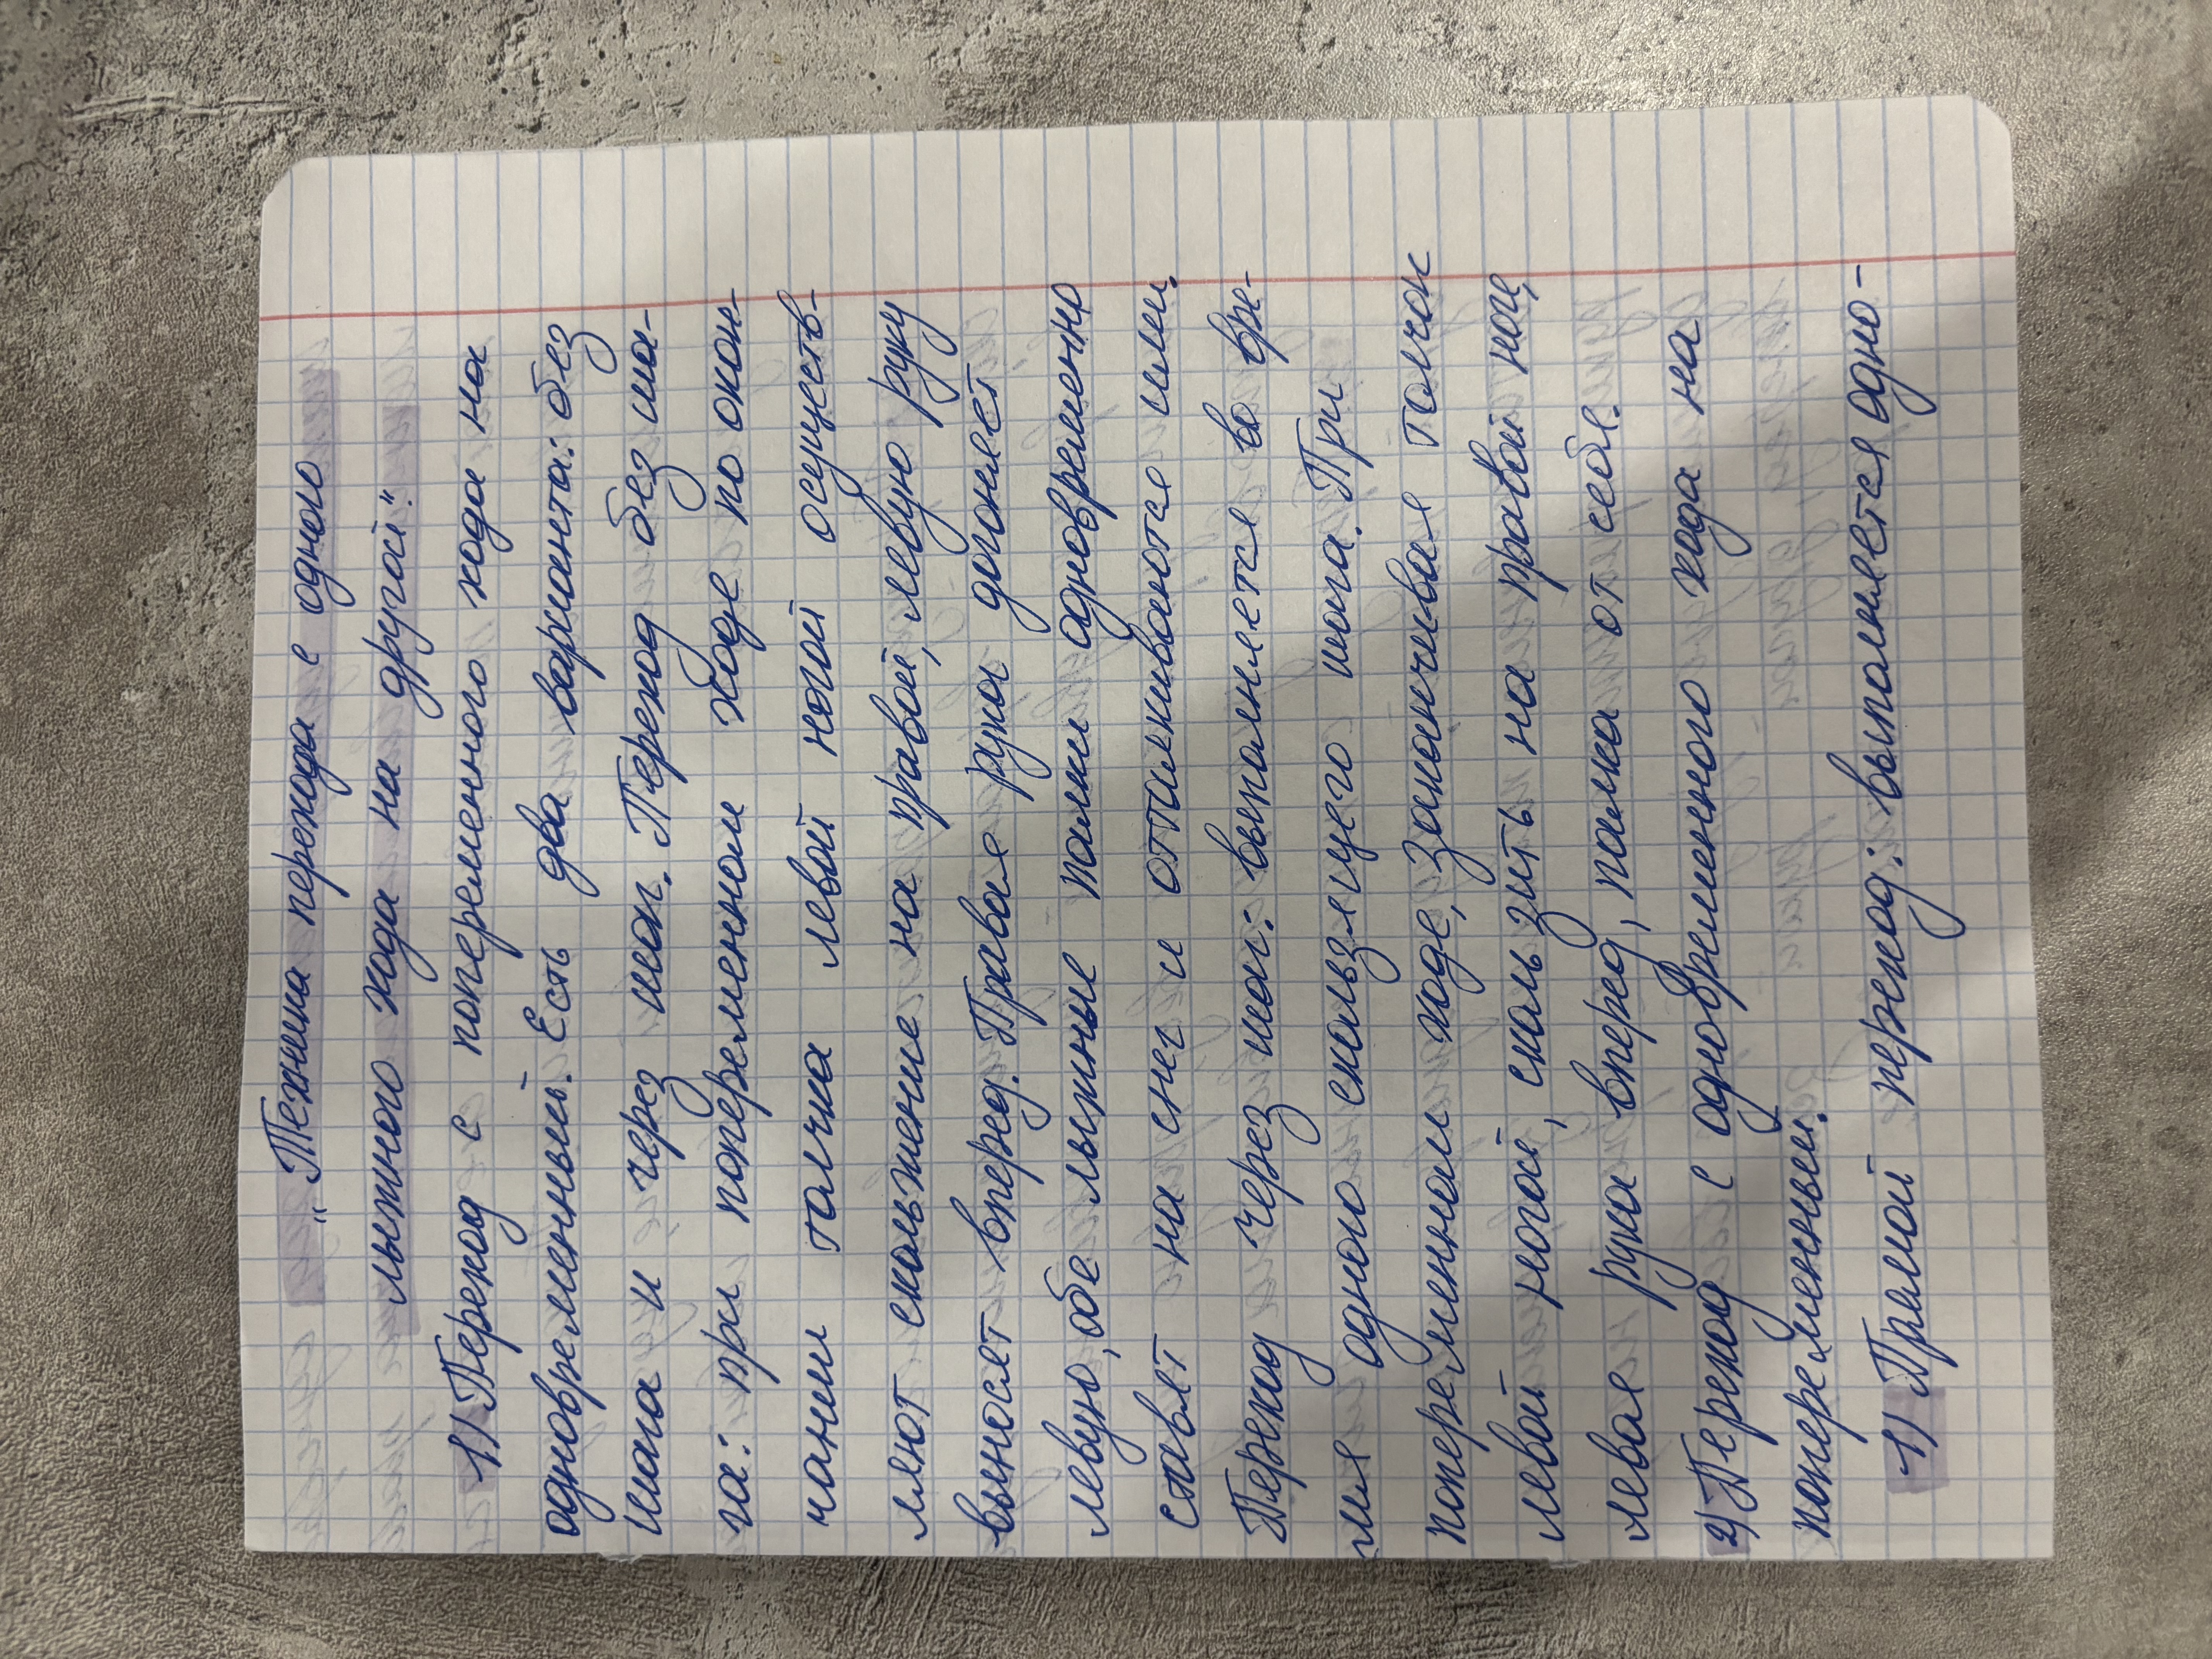 „Техника перехода с одного
лыжного хода на другой."
1) Переход с попеременного хода на
одновременный. Есть два варианта: без
шага и через шаг. Переход без ша-
га: при попеременном ходе по окон-
чании толчка левой ногой осуществ-
ляют скольжение на правой, левую руку
выносят вперед. Правая рука догоняет
левую, обе лыжные палки одновременно
ставят на снег и отталкиваются ими.
Переход через шаг: выполняется во вре-
мя одного скользящего шага. При
попеременном ходе, заканчивая толчок
левой ногой, скользить на правой ноге,
левая рука вперед, палка от себя.
2) Переход с одновременного хода на
попеременный.
1) Прямой переход: выполняется одно-